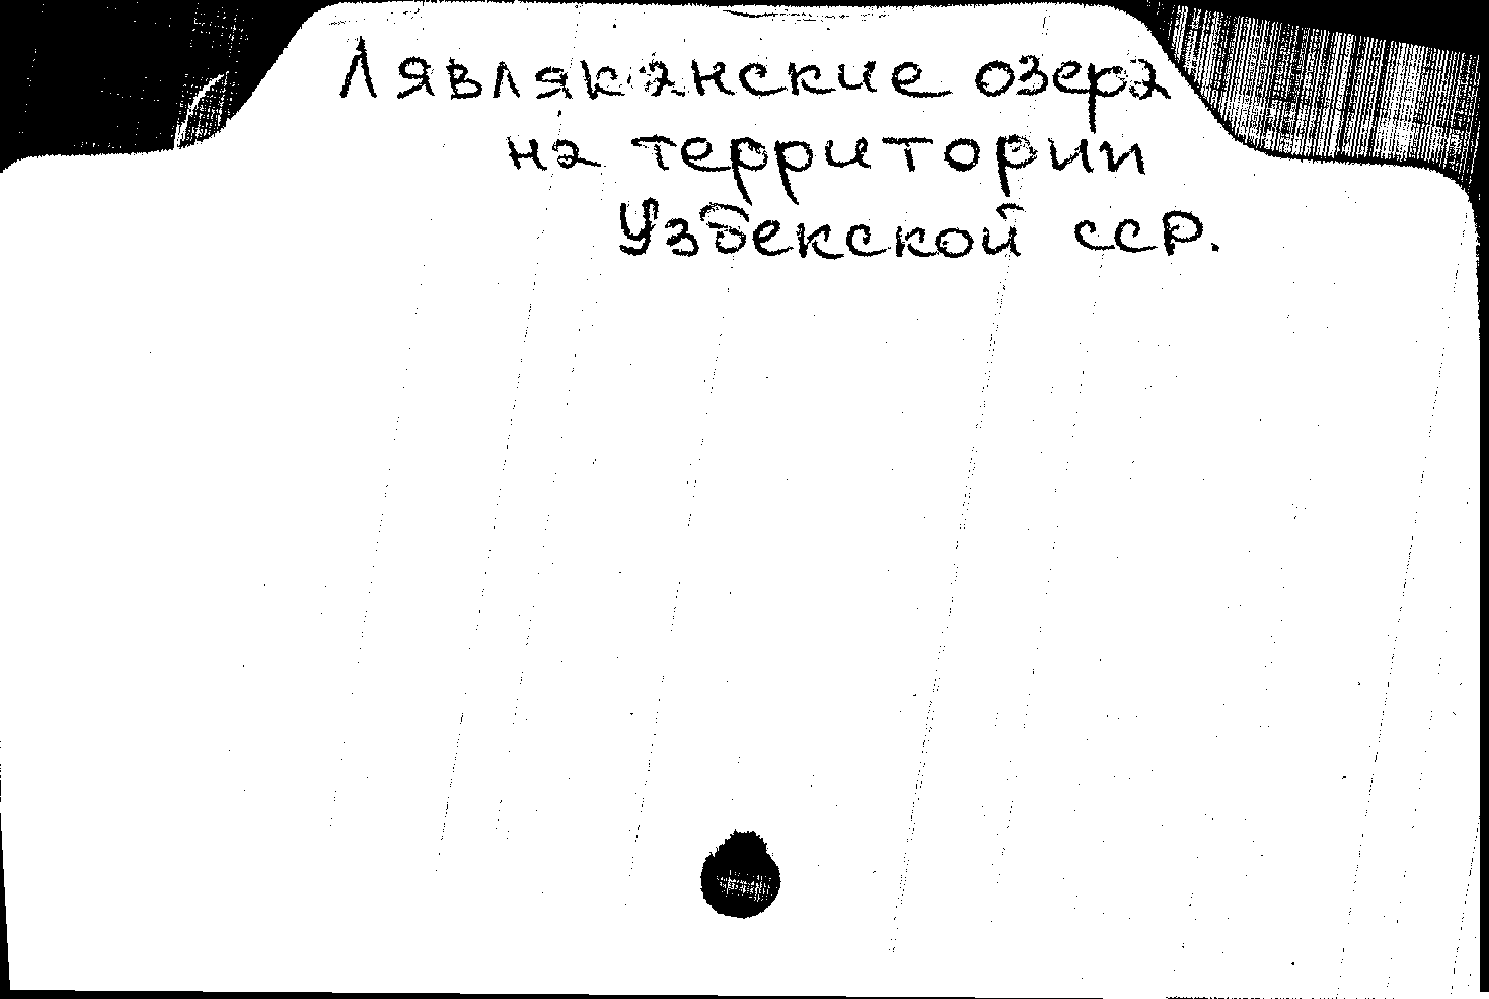 Лявляканские озера
на территории
Узбекской ССР.